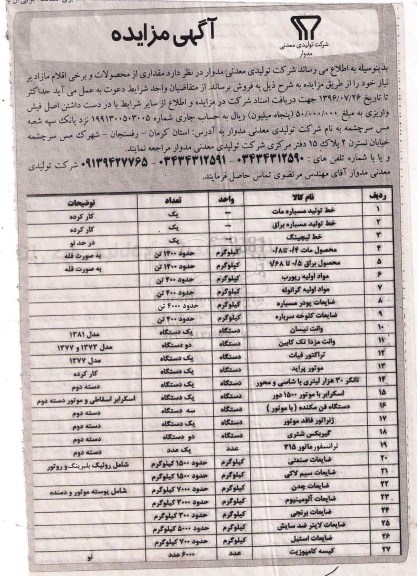 آگهی مزایده
شرکت تولیدی معدنی
مدوار
بدینوسیله به اطلاع می رساند شرکت تولیدی معدنی مدوار در نظر دارد مقداری از محصولات و برخی اقلام مازاد بر
نیاز خود را از طریق مزایده به شرح ذیل به فروش برساند. از متقاضیان واجد شرایط دعوت به عمل می آید حداکثر
تا تاریخ ۱۳۹۶/۰۷/۲۶ جهت دریافت اسناد شرکت در مزایده و اطلاع از سایر شرایط با در دست داشتن اصل فیش
واریزی به مبلغ ۵۰/۰۰۰/۰۰۰ (پنجاه میلیون) ریال به حساب جاری شماره ۱۹۹۱۳۰۰۵۰۳۰۰۵ نزد بانک سپه شعبه
مس سرچشمه به نام شرکت تولیدی معدنی مدوار به آدرس: استان کرمان - رفسنجان - شهرک مس سرچشمه
خیابان نسترن ۲ پلاک ۱۵ دفتر مرکزی شرکت تولیدی معدنی مدوار مراجعه نمایند.
و یا با شماره تلفن های : ۰۳۴۳۴۳۱۲۵۹۰ - ۰۳۴۳۴۳۱۲۵۹۱ - ۰۹۱۳۹۴۲۷۷۶۵ شرکت تولیدی
معدنی مدوار آقای مهندس مرتضوی تماس حاصل فرمایند.
ردیف نام کالا واحد تعداد توضیحات
۱ خط تولید مسباره مات — یک کار کرده
۲ خط تولید مسباره براق — یک کار کرده
۳ خط لیچینگ — یک در حد نو
۴ محصول مات ۰/۴ تا ۰/۸ کیلوگرم حدود ۱۳۰۰ تن به صورت فله
۵ محصول براق ۰/۵ تا ۱/۶۸ کیلوگرم حدود ۱۲۰۰ تن به صورت فله
۶ مواد اولیه ریورب کیلوگرم حدود ۴۰۰ تن
۷ مواد اولیه گرانوله کیلوگرم حدود ۴۰۰ تن
۸ ضایعات پودر مسباره کیلوگرم حدود ۴۰۰۰ تن
۹ ضایعات کلوخه سرباره کیلوگرم حدود ۲۰۰ تن
۱۰ وانت نیسان دستگاه یک دستگاه مدل ۱۳۸۱
۱۱ وانت مزدا تک کابین دستگاه دو دستگاه مدل ۱۳۷۳ و ۱۳۷۷
۱۲ تراکتور فیات دستگاه یک دستگاه مدل ۱۳۷۷
۱۳ موتور پراید دستگاه یک دستگاه کار کرده
۱۴ تانکر ۳۰ هزار لیتری با شاسی و محور دستگاه یک دستگاه دسته دوم
۱۵ اسکرابر با موتور ۱۵۰۰ دور دستگاه یک دستگاه اسکرابر اسقاطی و موتور دسته دوم
۱۶ دستگاه فن مکنده (با موتور) دستگاه سه دستگاه دسته دوم
۱۷ ژنراتور فاقد موتور دستگاه یک دستگاه دسته دوم
۱۸ گیربکس شتری دستگاه دو دستگاه دسته دوم
۱۹ ترانسفورماتور ۳۱۵ عدد یک عدد دسته دوم
۲۰ ضایعات صنعتی کیلوگرم حدود ۱۵۰۰ کیلوگرم شامل رولیک بلبرینگ و روتور
۲۱ ضایعات سیم لاکی کیلوگرم حدود ۱۵۰۰ کیلوگرم
۲۲ ضایعات چدن کیلوگرم حدود ۷۰۰۰ کیلوگرم شامل پوسته موتور و دمنده
۲۳ ضایعات آلومینیوم کیلوگرم حدود ۳۰۰۰ کیلوگرم
۲۴ ضایعات برنجی کیلوگرم حدود ۳۰۰ کیلوگرم
۲۵ ضایعات لاینر ضد سایش کیلوگرم حدود ۵۰۰۰ کیلوگرم
۲۶ ضایعات استیل کیلوگرم حدود ۷۰۰ کیلوگرم
۲۷ کیسه کامپوزیت عدد ۶۰۰۰ عدد نو